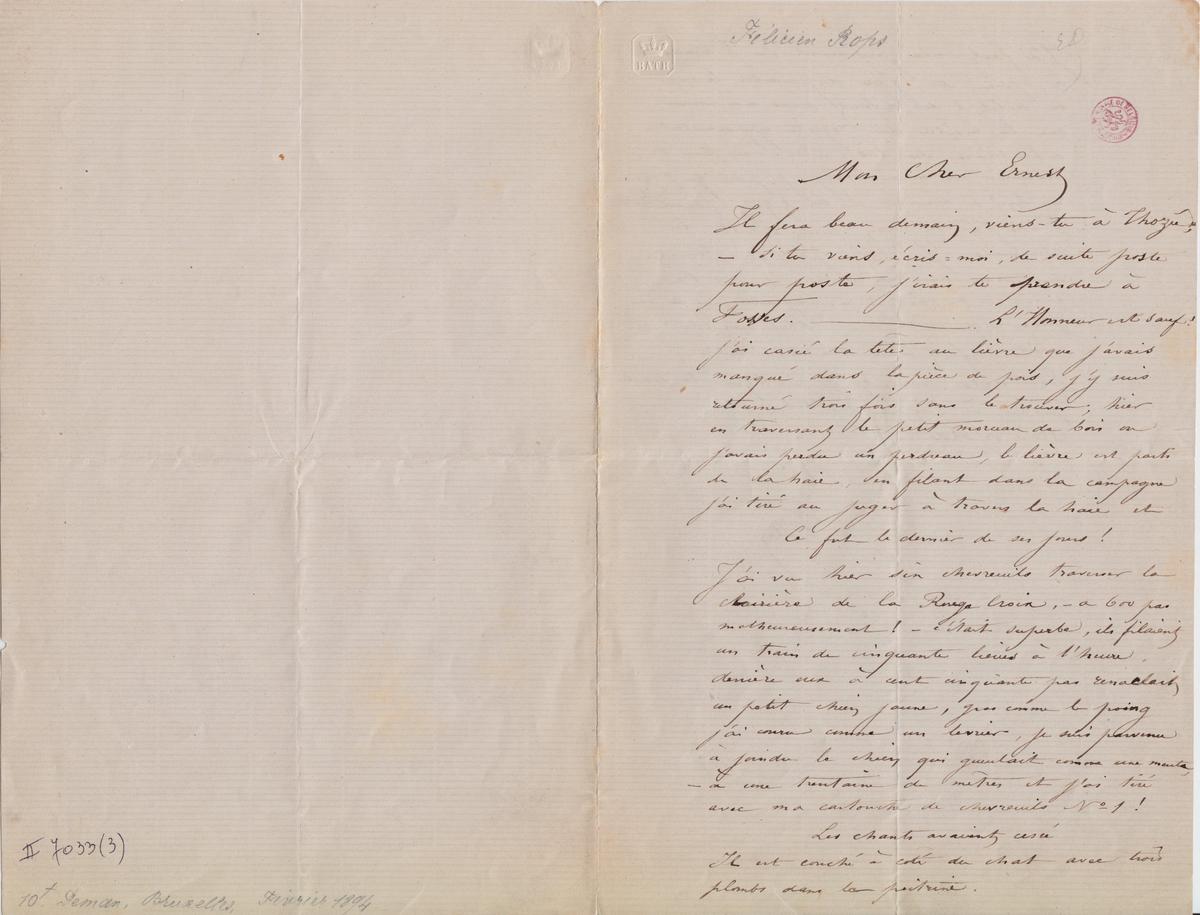 Félicien Rops
BATH
Mon Cher Ernest
Il fera beau demain, viens-tu à Thozée,
— si tu viens, écris=moi, de suite poste
pour poste, j'irais te prendre à
Fosses. ——— L'Honneur est sauf!
J'ai cassé la tête au lièvre que j'avais
manqué dans la pièce de pois, j'y suis
retourné trois fois sans le trouver; hier
en traversant le petit morceau de bois ou
j'avais perdu un perdreau, le lièvre est parti
de la haie, en filant dans la campagne
j'ai tiré au juger à travers la haie et
ce fut le dernier de ses jours!
J'ai vu hier six chevreuils traverser la
clairière de la Rouge Croix, – a 600 pas
malheureusement! – c'était superbe, ils filaient
un train de cinquante lieues à l'heure,
derrière eux à cent cinquante pas renaclait
un petit chien jaune, gros comme le poing
j'ai couru comme un levrier, je suis parvenu
à joindre le chien qui gueulait comme une meute,
– à une trentaine de mètres et j'ai tiré
avec ma cartouche de chevreuils No 1!
Les chants avaient cessé
Il est couché à coté du chat avec trois
plombs dans la poitrine.
II 7033(3)
10t. Deman, Bruxelles, Février 1894